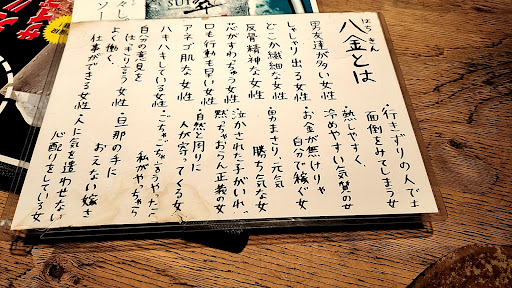 はちきん
八金とは
男友達が多い女性
しゃしゃり出る女性
どこか繊細な女性
反骨精神な女性
芯がすわっちゅう女性
口も行動も早い女性
アネゴ肌な女性
ハキハキしている女性
自分の意見を
はっきり言う女性
よく働く、
仕事ができる女性
・行きずりの人でも
面倒をみてしまう女
・熱しやすく、
冷めやすい気質の女
お金が無けりゃ
自分で稼ぐ女
・男まさり、元気
勝ち気な女
泣かされた子がいれば
黙っちゃおらん正義の女
・自然と周りに
人が寄ってくる女
・ごちゃごちゃ
私がやっちゃる
・旦那の手に
おえない嫁さ
人に気を遣わせない
心配りをしている女